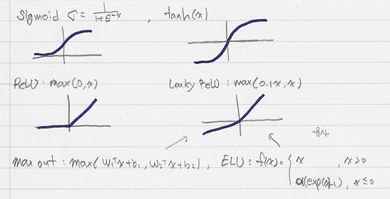 Sigmoid σ = 1/(1+e^-x) , tanh(x)
ReLU : max(0,x) Leaky ReLU : max(0.1x, x)
max out : max(w₁ᵀx+b₁, w₂ᵀx+b₂) , ELU : f(x) = { x , x>0
α(exp(x)-1) , x≤0